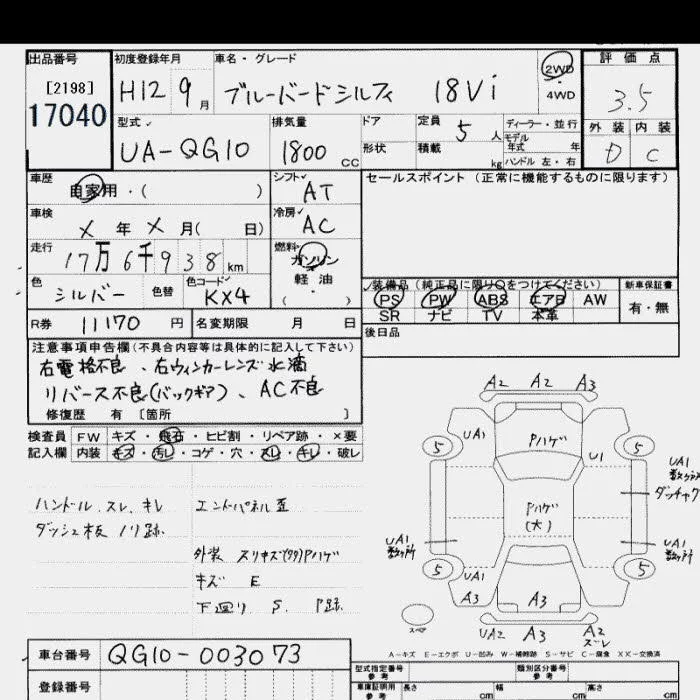 出品番号 初度登録年月 車名・グレード 2WD 評価点
[2198] H12 9月 ブルーバードシルフィ 18Vi 4WD 3.5
17040
型式 排気量 ドア 定員 5人 ディーラー・並行 外装 内装
モデル年式 年
UA-QG10 1800cc 形状 積載 kg ハンドル 左・右 D C
車歴 自家用・( ) シフト AT セールスポイント (正常に機能するものに限ります)
車検 X年X月( 日) 冷房 AC
走行 17万6千938km 燃料 ガソリン
軽油
色 シルバー 色替 色コード KX4 ( ・ )
装備品(純正品に限り○をつけてください) 新車保証書
PS PW ABS エアB AW 有・無
SR ナビ TV 本革
R券 11170円 名変期限 月 日 後日品
注意事項申告欄(不具合内容等は具体的に記入して下さい)
右電格不良、右ウィンカーレンズ水滴
リバース不良(バックギア)、AC不良
修復歴 有 [箇所 ]
検査員 FW キズ・飛石・ヒビ割・リペア跡・×要
記入欄 内装 キズ・汚レ・コゲ・穴・スレ・キレ・破レ
ハンドル スレ キレ エンドパネル歪
ダッシュ板 ノリ跡
外装 スリキズ(タタ)Pハゲ
キズ E
下廻り S. P跡.
A2 A2 A3
5 UA1 Pハゲ U1 5
UA1
数ヶ所
ダッチャク
Pハゲ
(大)
UA1
数ヶ所
UA1
数ヶ所
5 UA1 5
A3 A3
スペア UA2 A3 A2
ズレ
A-キズ E-エクボ U-凹み W-補修跡 S-サビ C-腐食 XX-交換済
車台番号 QG10-003073
登録番号
型式指定番号 参考 類別区分番号 参考
車庫証明用 参考 長さ cm 幅 cm 高さ cm